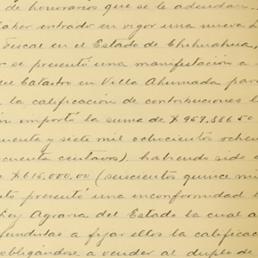 de honorarios que se le adeudan.
haber entrado en vigor una nueva L
Fiscal en el Estado de Chihuahua,
se presentó una manifestación a
Catastro en Villa Ahumada par
la calificación de contribuciones l
importó la suma de $ 957.886 50
cuenta y siete mil ochocientos oche
cuenta centavos) habiendo sido
$ 615,000.00 (seiscientos quince mi
presentó una inconformidad
Ley Agraria del Estado la cual
a fijar ellos la calificac
obligándose a vender al duplo de